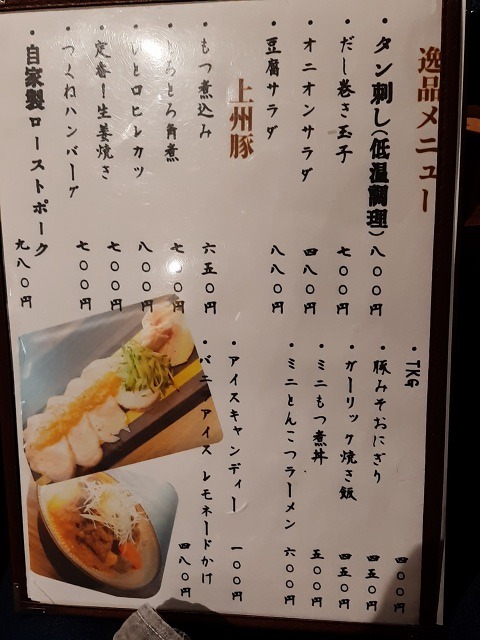 逸品メニュー
・タン刺し(低温調理) 八〇〇円
・だし巻き玉子 七〇〇円
・オニオンサラダ 四八〇円
・豆腐サラダ 八八〇円
上州豚
・もつ煮込み 六五〇円
・とろとろ角煮 七〇〇円
・ひとロヒレカツ 八〇〇円
・定番!生姜焼き 七〇〇円
・つくねハンバーグ 七〇〇円
・自家製ローストポーク 九八〇円
・TKG 四〇〇円
・豚みそおにぎり 四五〇円
・ガーリック焼き飯 四五〇円
・ミニもつ煮丼 五〇〇円
・ミニとんこつラーメン 六〇〇円
・アイスキャンディー 一〇〇円
・バニラアイスレモネードかけ 四八〇円